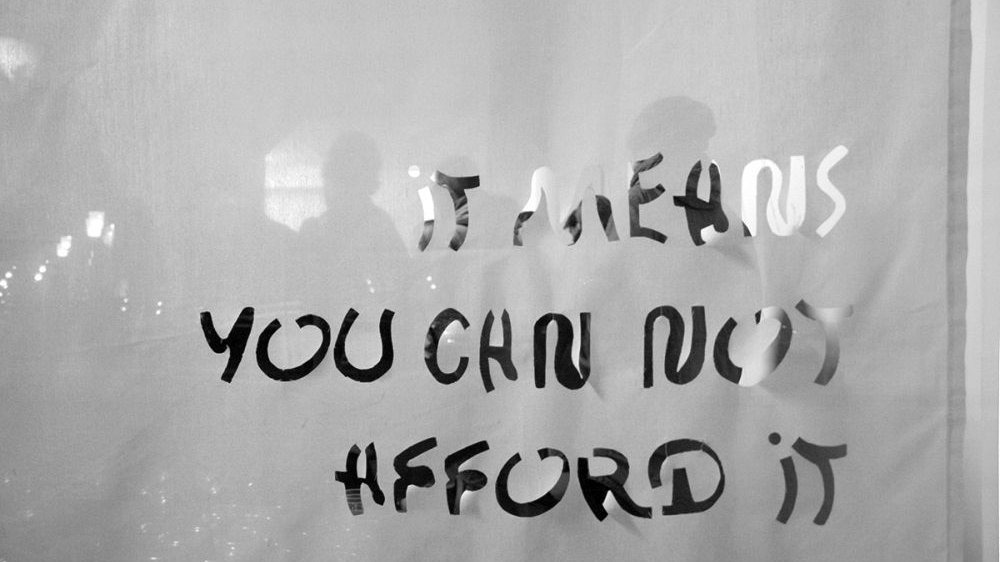 iT MEANS
YOU CAN NOT
AFFORD iT